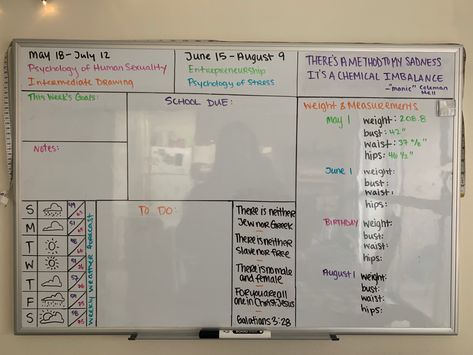 May 18-July 12
Psychology of Human Sexuality
Intermediate Drawing
June 15-August 9
Entrepreneurship
Psychology of Stress
THERE'S A METHOD TO MY SADNESS
IT'S A CHEMICAL IMBALANCE
-"manic" Coleman
Hell
This Week's Goals:
SCHOOL DUE:
Notes:
Weight & Measurements
May 1
weight: 208.8
bust: 42"
waist: 37
hips: 46 ½"
June 1
weight:
bust:
waist:
hips:
BIRTHDAY
weight:
bust:
waist:
hips:
August 1
weight:
bust:
waist:
hips:
S
M
T
W
T
F
S
weekly weather forecast
TO DO:
There is neither
Jew nor Greek
There is neither
slave nor free
There is no male
and female
FOR you are all
one in Christ Jesus
Galatians 3:28